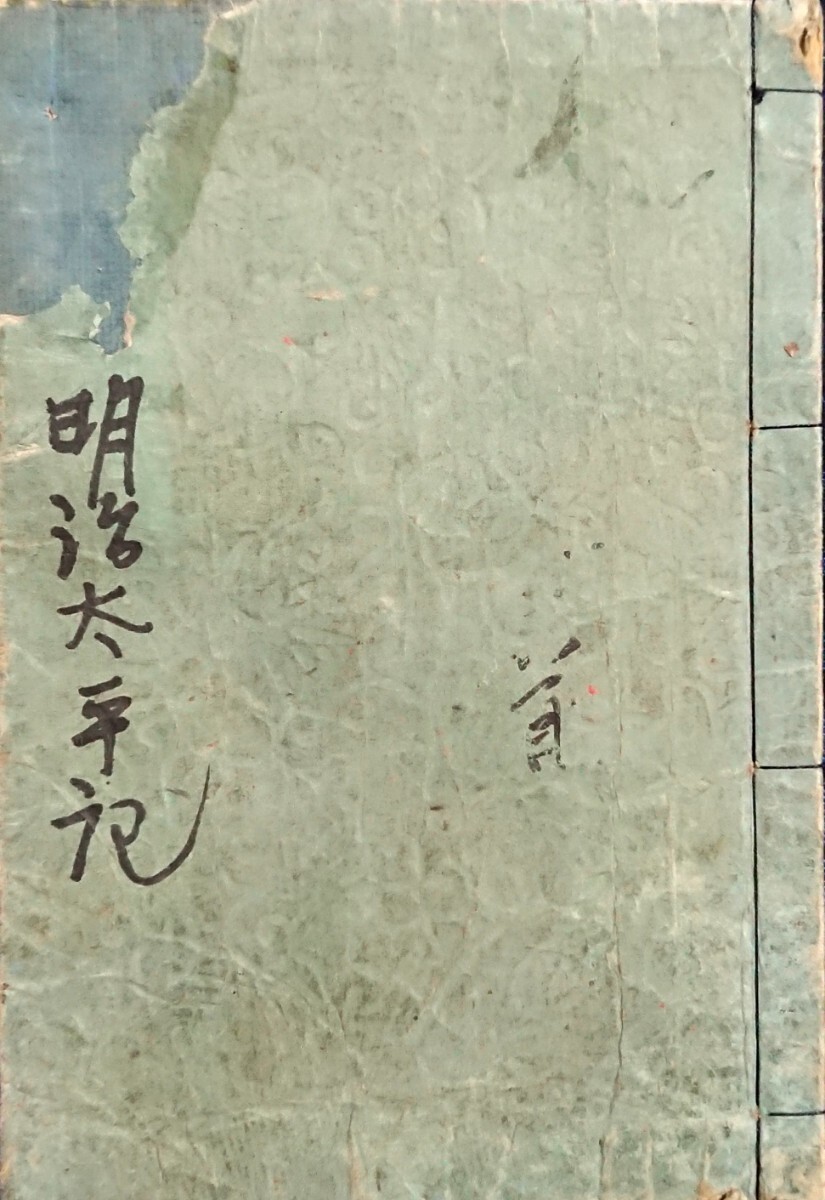 首
明治太平記